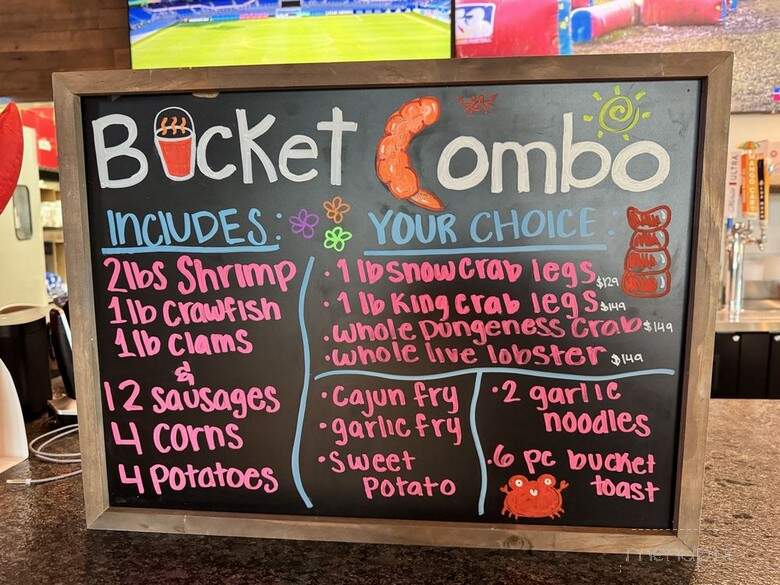 Bucket Combo
INCLUDES:
2lbs Shrimp
1lb Crawfish
1lb Clams
&
12 sausages
4 corns
4 Potatoes
YOUR CHOICE:
· 1 lb snow crab legs $129
· 1 lb King crab legs $149
· whole Dungeness Crab $149
· whole live lobster $149
· Cajun fry
· garlic fry
· sweet
Potato
· 2 garlic
noodles
· 6 pc bucket
toast
ULTRA
MANGO CART